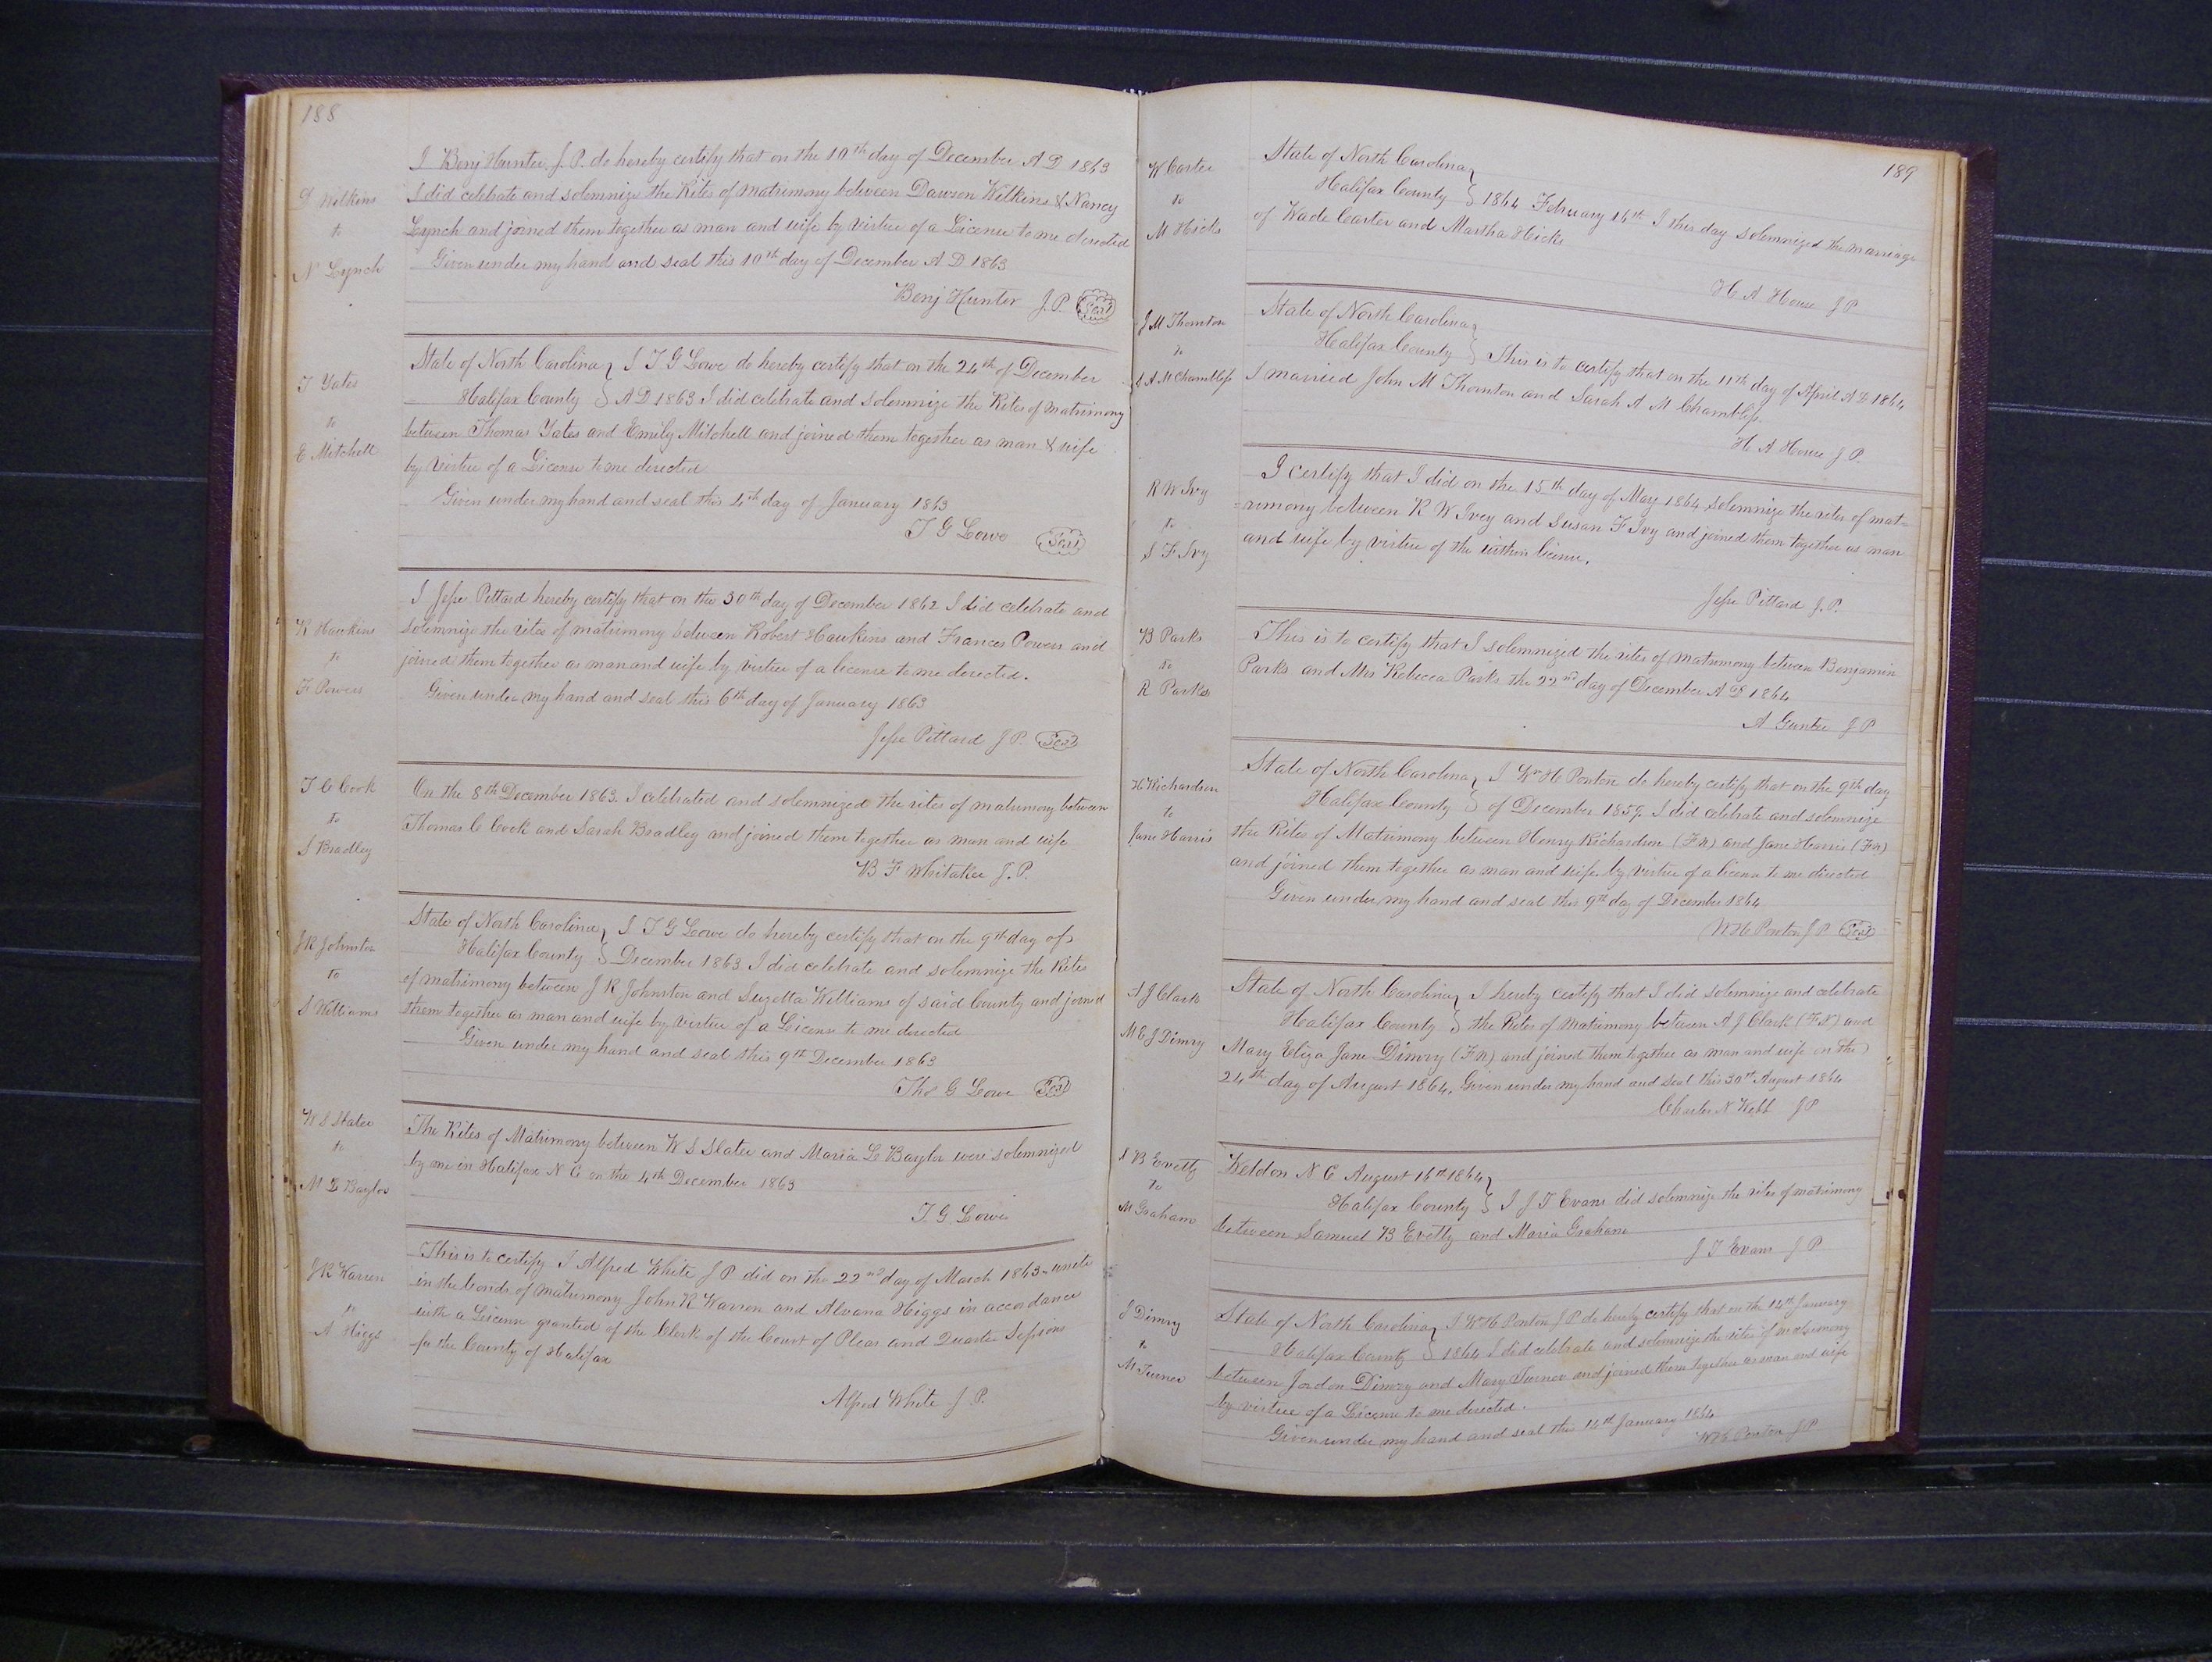 188
D Wilkins
to
N Lynch
I Benj Hunter J. P. do hereby certify that on the 10th day of December A D 1863
I did celebrate and solemnize the Rites of matrimony between Dawson Wilkins & Nancy
Lynch and joined them together as man and wife by virtue of a License to me directed
Given under my hand and seal this 10th day of December A D 1863
Benj Hunter J. P. Seal
T Yates
to
E Mitchell
State of North Carolina } I T G Lowe do hereby certify that on the 24th of December
Halifax County } A D 1863 I did celebrate and solemnize the Rites of matrimony
between Thomas Yates and Emily Mitchell and joined them together as man & wife
by virtue of a License to me directed
Given under my hand and seal this 4th day of January 1863
T G Lowe Seal
R Hawkins
to
F Powers
I Jesse Pittard hereby certify that on the 30th day of December 1862 I did celebrate and
solemnize the rites of matrimony between Robert Hawkins and Frances Powers and
joined them together as man and wife by virtue of a license to me directed.
Given under my hand and seal this 6th day of January 1863
Jesse Pittard J P. Seal
T C Cook
to
S Bradley
On the 8th December 1863. I celebrated and solemnized the rites of matrimony between
Thomas C Cook and Sarah Bradley and joined them together as man and wife
B F Whitaker J. P.
J R Johnston
to
S Williams
State of North Carolina } I T G Lowe do hereby certify that on the 9th day of
Halifax County } December 1863 I did celebrate and solemnize the Rites
of matrimony between J R Johnston and Suzetta Williams of said County and joined
them together as man and wife by virtue of a License to me directed
Given under my hand and seal this 9th December 1863
Thos G Lowe Seal
W S Slater
to
M L Baylor
The Rites of Matrimony between W S Slater and Maria L Baylor were solemnized
by me in Halifax N C on the 4th December 1863
T. G. Lowe
J R Warren
to
A Higgs
This is to certify I Alfred White J P did on the 22nd day of March 1863 unite
in the bonds of matrimony John R Warren and Alvana Higgs in accordance
with a License granted of the Clerk of the Court of Pleas and Quarter Sessions
for the County of Halifax
Alfred White J P.
189
W Carter
to
M Hicks
State of North Carolina }
Halifax County } 1864 February 16th I this day solemnized the marriage
of Wade Carter and Martha Hicks
H A House J P
J M Thornton
to
S A M Chambless
State of North Carolina }
Halifax County } This is to certify that on the 11th day of April A D 1864
I married John M Thornton and Sarah A M Chambless
H A House J P.
R W Ivy
to
S F Ivy
I certify that I did on the 15th day of May 1864 solemnize the rites of mat=
=rimony between R W Ivey and Susan F Ivy and joined them together as man
and wife by virtue of the within license.
Jesse Pittard J. P.
B Parks
to
R Parks
This is to certify that I solemnized the rites of matrimony between Benjamin
Parks and Mrs Rebecca Parks the 22nd day of December A D 1864
A Gunter J P
H Richardson
to
Jane Harris
State of North Carolina } I Wm H Ponton do hereby certify that on the 9th day
Halifax County } of December 1859. I did celebrate and solemnize
the Rites of Matrimony between Henry Richardson (F N) and Jane Harris (F N)
and joined them together as man and wife by virtue of a license to me directed
Given under my hand and seal this 9th day of December 1864
W H Ponton J P Seal
A J Clark
M E J Dimry
State of North Carolina } I hereby certify that I did solemnize and celebrate
Halifax County } the Rites of Matrimony between A J Clark (F N) and
Mary Eliza Jane Dimry (F N) and joined them together as man and wife on the
24th day of August 1864. Given under my hand and seal this 30th August 1864
Charles N Webb J P
S B Evetty
to
M Graham
Weldon N C August 16th 1864 }
Halifax County } I J T Evans did solemnize the rites of matrimony
between Samuel B Evetty and Maria Graham
J T Evans J P
J Dimry
to
M Turner
State of North Carolina } I Wm H Ponton J P do hereby certify that on the 14th January
Halifax County } 1864 I did celebrate and solemnize the rites of matrimony
between Jordon Dimry and Mary Turner and joined them together as man and wife
by virtue of a License to me directed.
Given under my hand and seal this 14th January 1864
W H Ponton J P